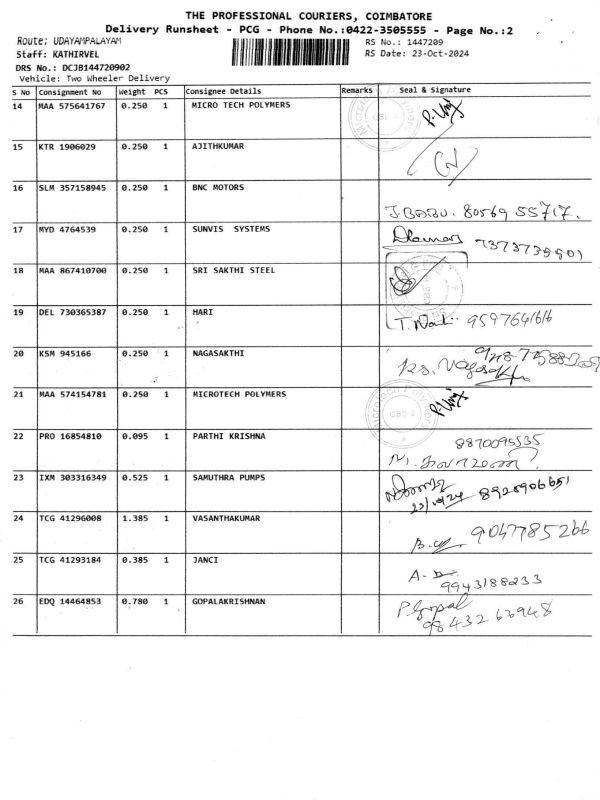 THE PROFESSIONAL COURIERS, COIMBATORE
Delivery Runsheet - PCG - Phone No.:0422-3505555 - Page No.:2
Route: UDAYAMPALAYAM
RS No.: 1447209
Staff: KATHIRVEL
RS Date: 23-Oct-2024
DRS No.: DCJB144720902
Vehicle: Two Wheeler Delivery
S No Consignment No Weight PCS Consignee Details Remarks Seal & Signature
14 MAA 575641767 0.250 1 MICRO TECH POLYMERS
15 KTR 1906029 0.250 1 AJITHKUMAR
16 SLM 357158945 0.250 1 BNC MOTORS
J.BABU. 80569 55717.
17 MYD 4764539 0.250 1 SUNVIS SYSTEMS
18 MAA 867410700 0.250 1 SRI SAKTHI STEEL
19 DEL 730365387 0.250 1 HARI
9597641616
20 KSM 945166 0.250 1 NAGASAKTHI
21 MAA 574154781 0.250 1 MICROTECH POLYMERS
22 PRO 16854810 0.095 1 PARTHI KRISHNA
8870095535
23 IXM 303316349 0.525 1 SAMUTHRA PUMPS
23/10/24 8925906651
24 TCG 41296008 1.385 1 VASANTHAKUMAR
9047785266
25 TCG 41293184 0.385 1 JANCI
9943188233
26 EDQ 14464853 0.780 1 GOPALAKRISHNAN
P.Gopal